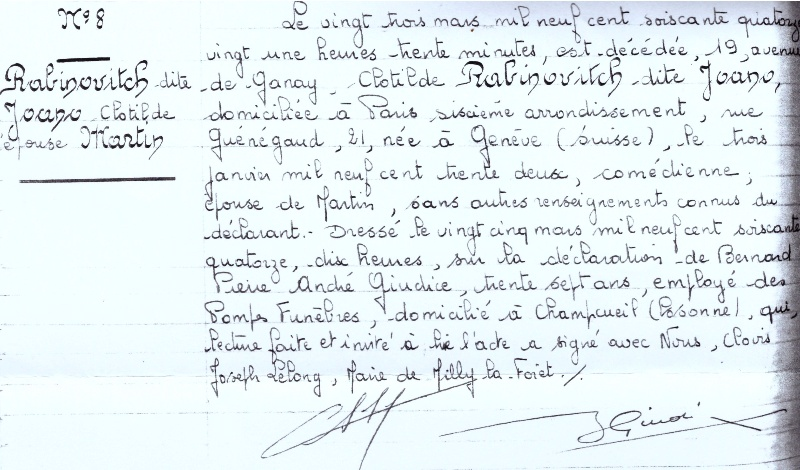 N° 8
Rabinovitch dite
Joano Clotilde
épouse Martin
Le vingt trois mars mil neuf cent soixante quatorze
vingt une heures trente minutes, est décédée, 19, avenue
de Ganay, Clotilde Rabinovitch dite Joano,
domiciliée à Paris sixième arrondissement, rue
Guénégaud, 21, née à Genève (Suisse), le trois
janvier mil neuf cent trente deux, comédienne ;
épouse de Martin, sans autres renseignements connus du
déclarant.- Dressé le vingt cinq mars mil neuf cent soixante
quatorze, dix heures, sur la déclaration de Bernard
Pierre André Giudice, trente sept ans, employé des
Pompes Funèbres, domicilié à Champcueil (Essonne), qui,
lecture faite et invité à lire l'acte a signé avec Nous, Clovis
Joseph Lelong, Maire de Milly-la-Forêt./.